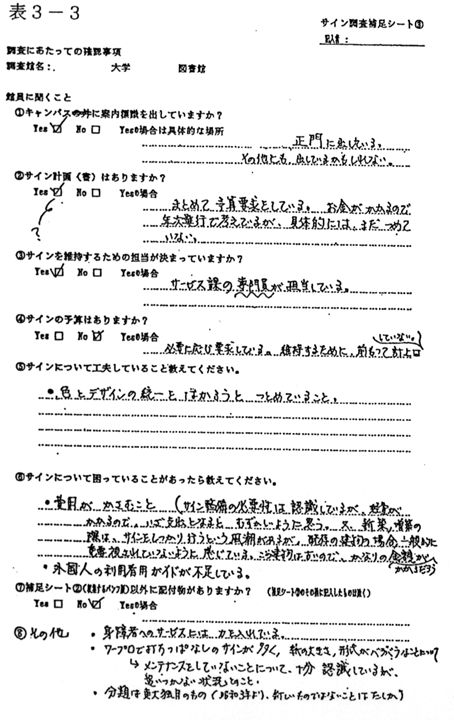 表３－３
サイン調査補足シート③
記入者：
調査にあたっての確認事項
調査館名：. 大学 図書館
館員に聞くこと
①キャンパスの外に案内標識を出していますか？
Yes☑ No□ Yesの場合は具体的な場所
正門に出している。
その他にも、出しているかもしれない。
②サイン計画（書）はありますか？
Yes☑ No□ Yesの場合
まとめて予算要求をしている。お金がかかるので
年次進行で考えているが、具体的には、まだつめて
いない。
？
③サインを維持するための担当が決まっていますか？
Yes☑ No□ Yesの場合
サービス課の専門員が担当している。
④サインの予算はありますか？
Yes□ No☑ Yesの場合
していない。
必要に応じ要求している。維持するために、前もって計上
⑤サインについて工夫していること教えてください。
・色とデザインの統一をはかろうとつとめていること。
⑥サインについて困っていることがあったら教えてください。
・費目がかさむこと（サイン整備の必要性は認識しているが、経費が
かかるので、いざ支出となるとむずかしいように思う。又、新築、増築の
際は、サインをしっかり行うという風潮があるが、既存の建物の場合、一般的に
重要視されていないように感じている。この建物は古いので、かなりの金額が
かかるだろう
・外国人の利用者用ガイドが不足している。
⑦補足シート②以外に配付物がありますか？
Yes□ No☑ Yesの場合
⑧その他 ・身障者へのサービスには力を入れている。
・ワープロで打ちっぱなしのサインが多く、紙の大きさ、形式がバラバラなことについて
↳メンテナンスをしていないことについて、十分認識しているが、
追いつかない状況とのこと。
・分類は東大独自のもの（昭和3年より、新しいものではないことはたしか）